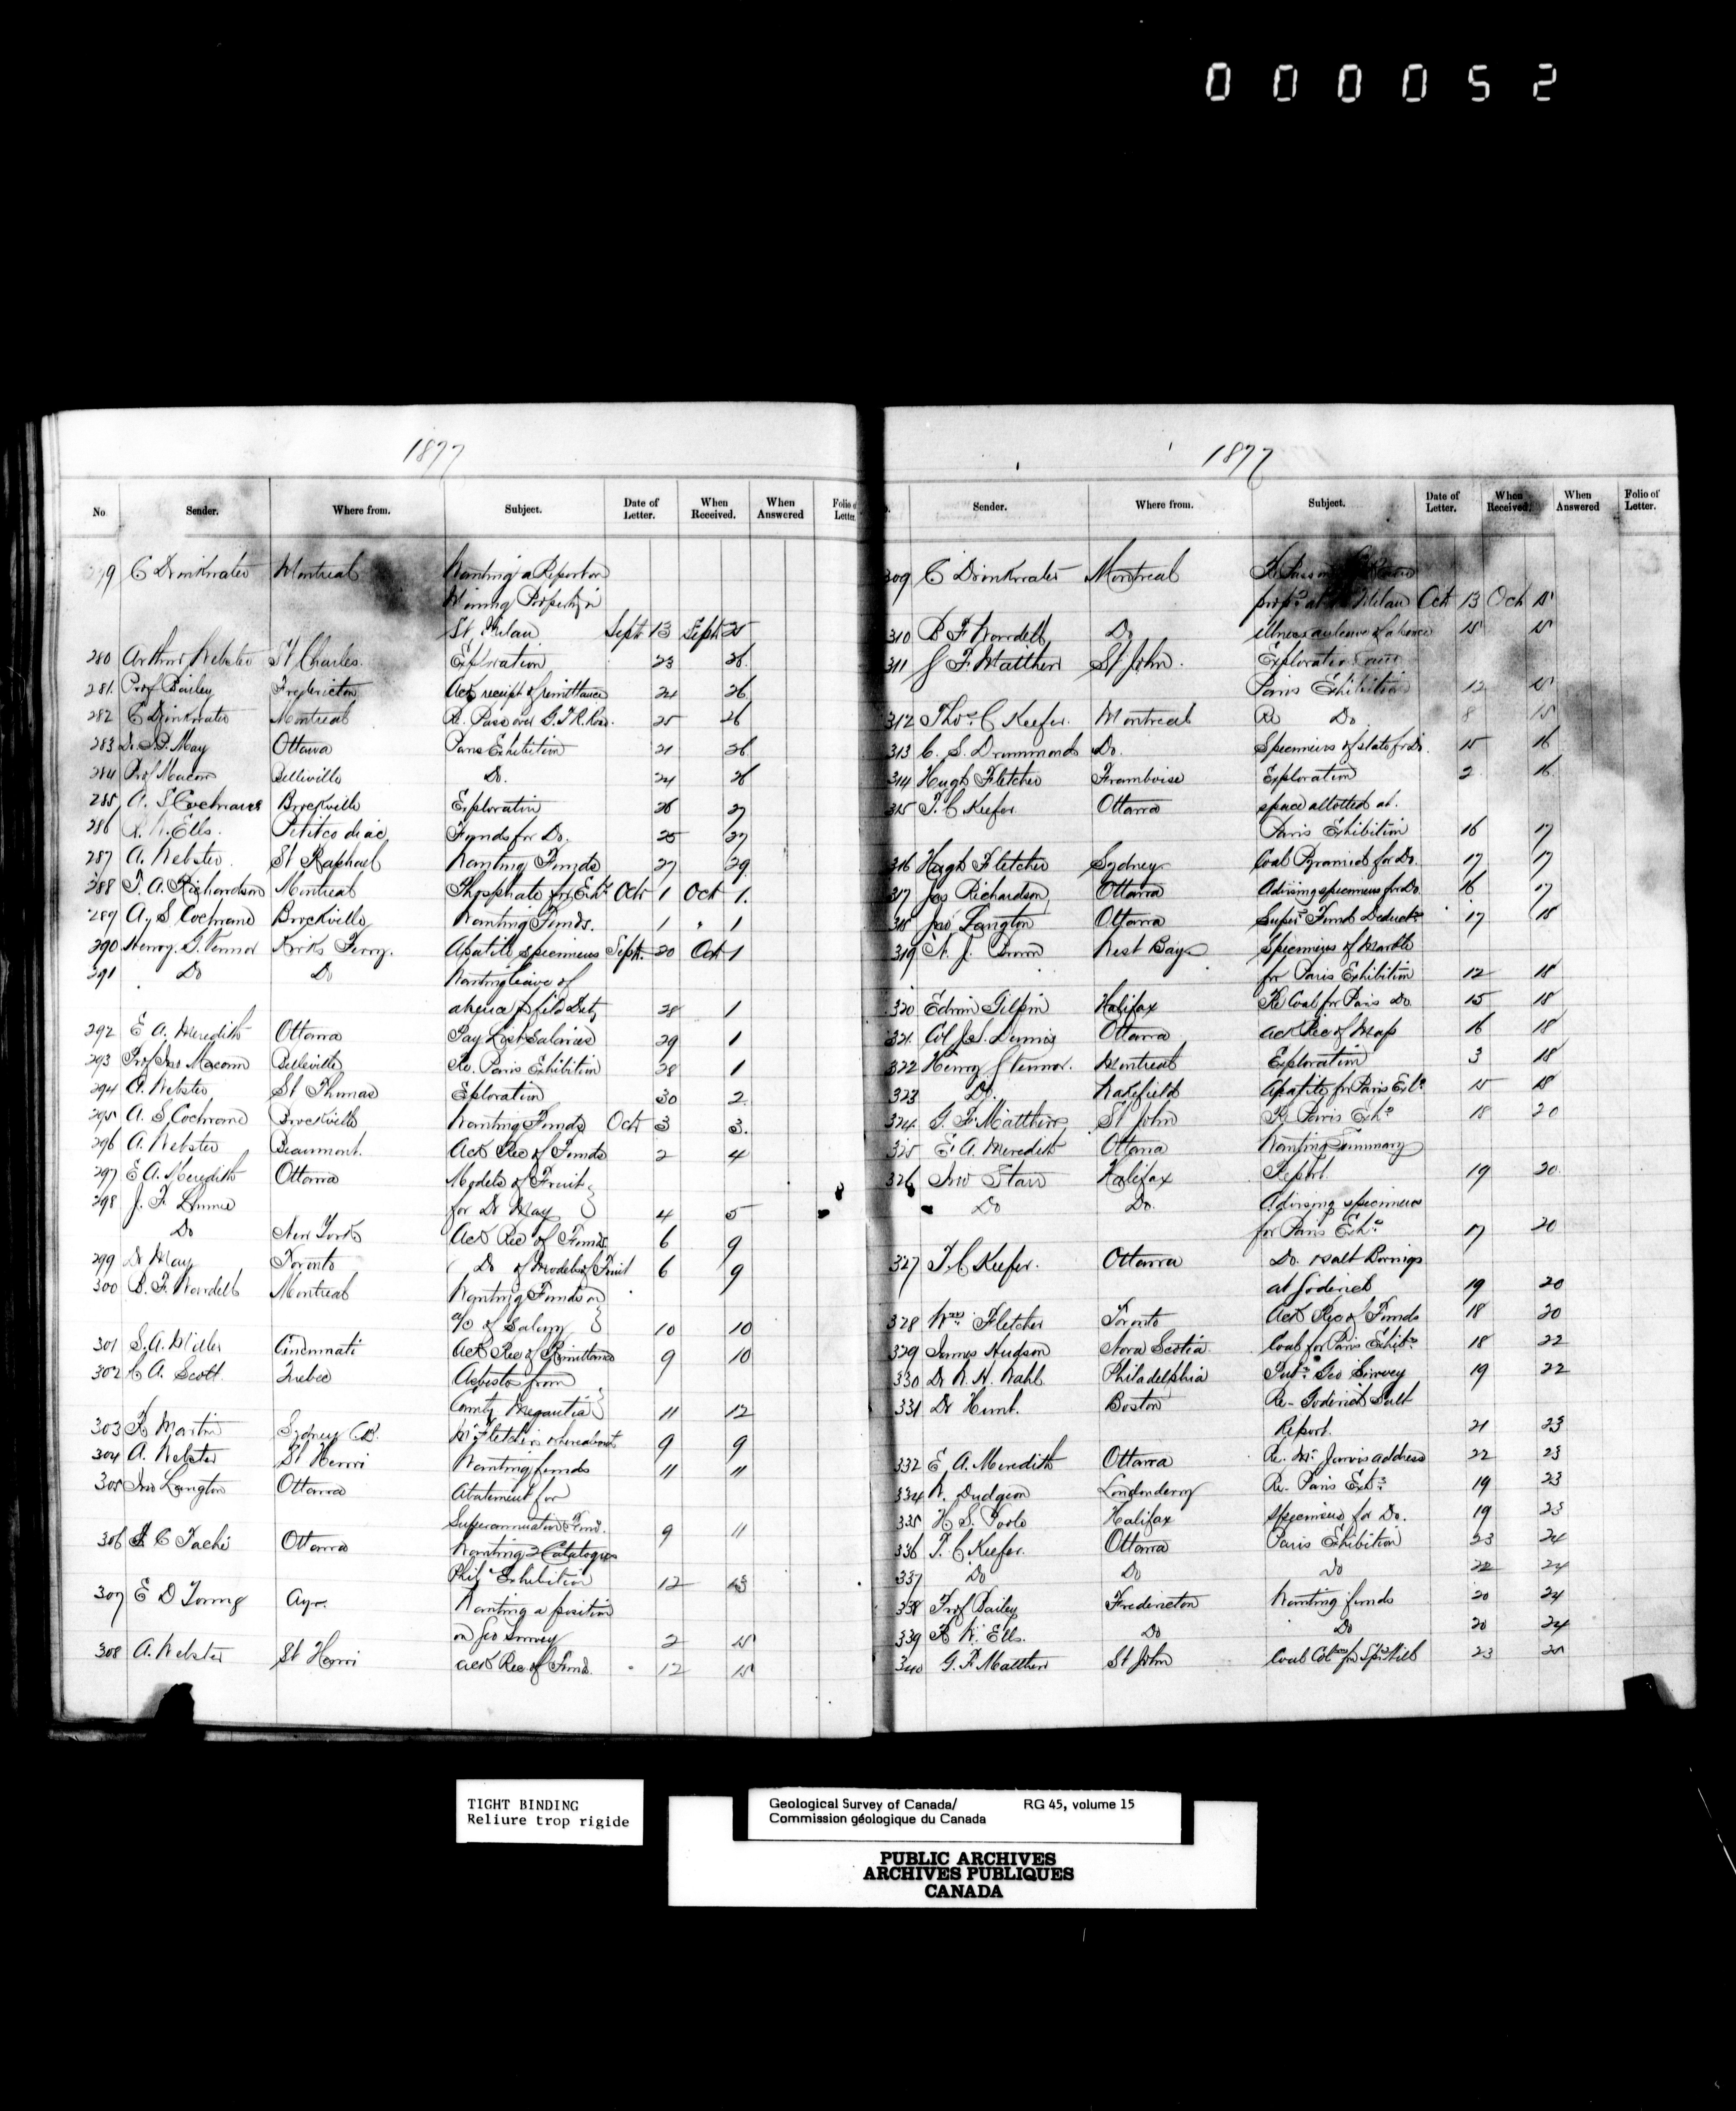 000052
1877
No. Sender. Where from. Subject. Date of Letter. When Received. When Answered Folio of Letter.
279 C Drinkwater Montreal Wanting a Report on
Mining Property in
St. Milau Sept 13 Sept 25
280 Arthur Webster St Charles. Exploration 23 26
281. Prof Bailey Fredericton Ack receipt of remittance 24 26
282 C Drinkwater Montreal Re. Pass over G.T.R. Road. 25 26
283 Dr. S.P. May Ottawa Paris Exhibition 21 26
284 Prof Macoun Belleville Do. 24 26
285 A. S Cochrane Brockville Exploration 26 27
286 R. W. Ells. Petitcodiac Funds for Do. 25 27
287 A. Webster. St Raphael Wanting Funds 27 29
288 T. A. Richardson Montreal Phosphate for Exhn Oct 1 Oct 1.
289 A. S Cochrane Brockville Wanting Funds. 1 " 1
290 Henry. G. Vennor Kirks Ferry. Apatite specimens Sept. 20 Oct 1
291 Do Do Wanting leave of
absence
28 1
292 E A. Meredith Ottawa Pay List Salaries 29 1
293 Prof Jno Macoun Belleville Re. Paris Exhibition 28 1
294 A. Webster St Thomas Exploration 30 2
295 A. S. Cochrane Brockville Wanting Funds Oct 3 3.
296 A. Webster Beaumont. Ack Rec of Funds 2 4
297 E A. Meredith Ottawa Models of Fruit
298 J. F.
for Dr May 4 5
Do New York Ack Rec of Funds 6 9
299 Dr May Toronto Do of Models of Fruit 6 9
300 B. F. Wardell Montreal Wanting Funds on
a/c of Salary 10 10
301 S. A. Miller Cincinnati Ack Rec of Remittance 9 10
302 C A. Scott. Quebec Asbestos from
County Megantic 11 12
303 Martin Sydney C.B. Mr Fletcher's whereabouts 9 9
304 A. Webster St Henri Wanting funds 11 11
305 Jno Langton Ottawa Abatement for
Superannuation Fund. 9 11
306 J. C Taché Ottawa Wanting 2 Catalogues
Phila Exhibition 12 13
307 E D Young Ayr. Wanting a position
on Geo Survey 2 15
308 A. Webster St Henri Ack Rec of Funds. 12 15
1877
Sender. Where from. Subject. Date of Letter. When Received. When Answered Folio of Letter.
309 C Drinkwater Montreal Re Pass
propy at Milau Oct 13 Oct 15
310 B F Wardell Do illness and leave of absence 15 15
311 G F Matthew St John. Exploration and
Paris Exhibition 12 15
312 Thos. C Keefer. Montreal Re Do 8 15
313 C. S. Drummond Do. Specimens of slate for Do. 15 16
314 Hugh Fletcher Framboise Exploration 2 16
315 T. C Keefer Ottawa space allotted at.
Paris Exhibition 16 17
316 Hugh Fletcher Sydney Coal Pyramid for Do. 17 17
317 Jas Richardson Ottawa Advising specimens for Do. 16 17
318 Jno Langton Ottawa Super. Fund Deductn 17 18
319 N. J. Brown West Bay Specimens of Marble
for Paris Exhibition 12 18
320 Edwin Gilpin Halifax Re Coal for Paris Do 15 18
321 Col J. S. Dennis Ottawa Ack Rec of Map 16 18
322 Henry G Vennor. Montreal Exploration 3 18
323 Do. Wakefield Apatite for Paris Exhn 15 18
324. G. F. Matthew St John Re Paris Exhn 18 20
325 E. A. Meredith Ottawa Wanting Summary
326 Jno Starr Halifax Report. 19 20
Do Do. Advising specimens
for Paris Exhn 17 20
327 T. C Keefer. Ottawa Do. salt Borings
at Goderich 19 20
328 Wm. Fletcher Toronto Ack Rec of Funds 18 20
329 James Hudson Nova Scotia Coal for Paris Exhibn 18 22
330 Dr W. H. Wahl Philadelphia Pubn Geo Survey 19 22
331 Dr Hunt. Boston Re- Goderich Salt
Report. 21 23
332 E. A. Meredith Ottawa Re. Mr. Jarvis address 22 23
334 W. Dudgeon Londonderry Re. Paris Exhn 19 23
335 H S. Poole Halifax specimens for Do. 19 23
336 T. C Keefer. Ottawa Paris Exhibition 23 24
337 Do Do Do 22 24
338 Prof Bailey Fredericton Wanting funds 20 24
339 R W. Ells. Do Do 20 24
340 G. F. Matthew St John Coal Colmn for 23 25
TIGHT BINDING
Reliure trop rigide
Geological Survey of Canada/ RG 45, volume 15
Commission géologique du Canada
PUBLIC ARCHIVES
ARCHIVES PUBLIQUES
CANADA